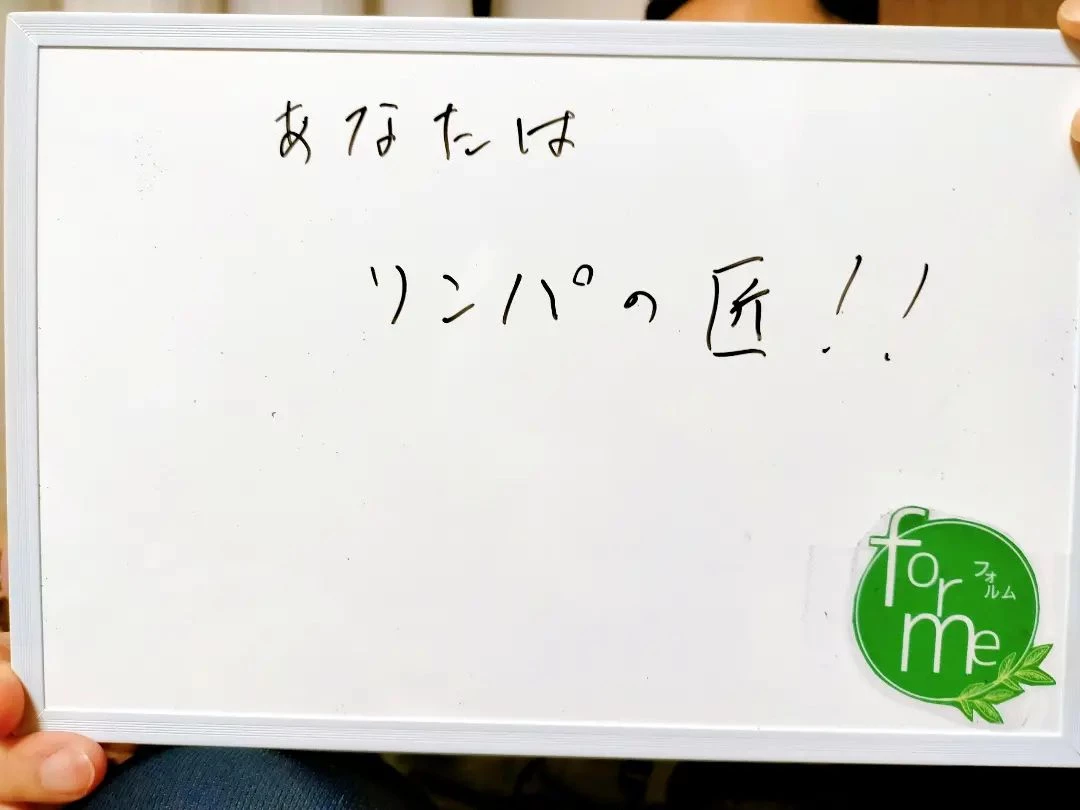 あなたは
リンパの匠!!
for
me
フォルム